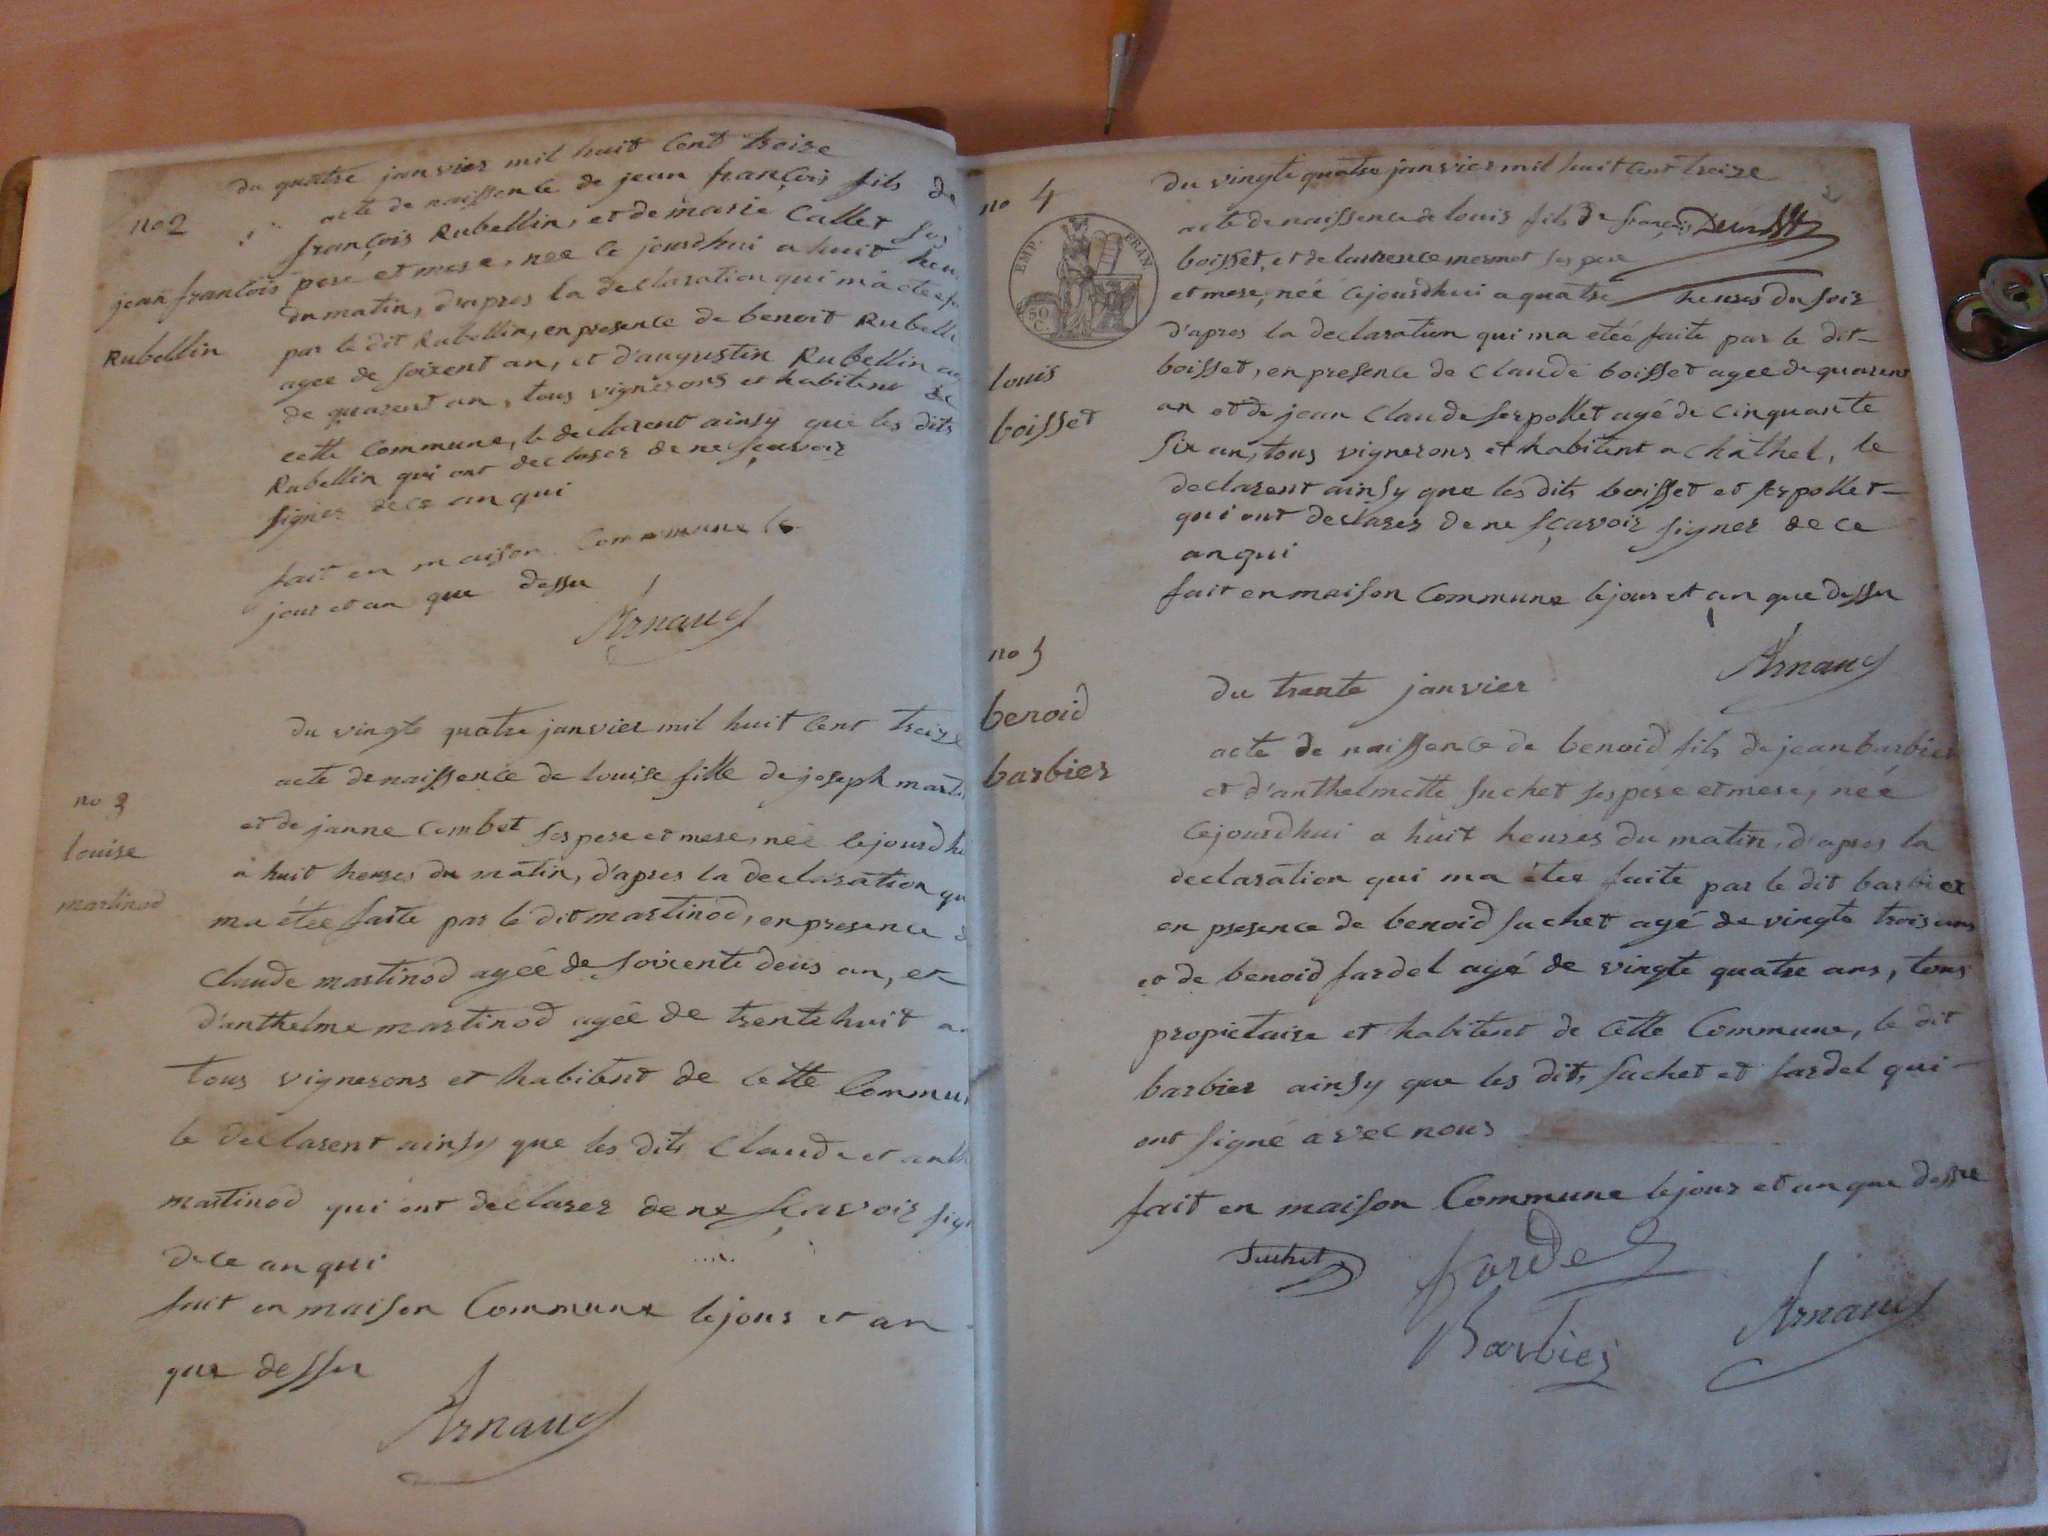 du quatre janvier mil huit cent treize
no 2
acte de naissence de jean françois fils de
françois Rubellin, et de marie Callet ses
jean francois
pere et mere, nee ce jourdhui a huit heu
du matin, d'apres la declaration qui m'a etee
Rubellin
par le dit Rubellin, en presence de benoit Rubelli
agee de soixent an, et d'augustin Rubellin
de quarent an, tous vignerons et habitent de
cette Commune, le declarent ainsy que les dits
Rubellin qui ont declarer de ne sçavoir
signer de ce an qui
fait en maison Commune le
jour et an que dessu
Arnaud
du vingte quatre janvier mil huit cent treize
acte de naissence de louise fille de joseph marti
no 3
louise
martinod
et de janne Combet ses pere et mere, neé cejourdhu
a huit heures du matin, d'apres la declaration qu
ma étee faite par le dit martinod, en presence
Claude martinod ageé de soixente deus an, et
d'anthelme martinod ageé de trente huit
tous vignerons et habitent de cette Commu
le declarent ainsy que les dits Claude et anth
martinod qui ont declarer de ne sçavoir sign
de ce an qui
fait en maison Commune le jour et an
que dessu
Arnaud
no 4
du vingte quatre janvier mil huit cent treize
EMP. FRAN.
50 C.
acte de naissence de louis fils de françois
boisset, et de laurence mermet ses pere
et mere, neé cejourdhui a quatre heures du soir
d'apres la declaration qui ma eteé faite par le dit
louis
boisset
boisset, en presence de Claude boisset agee de quarent
an et de jean Claude serpollet agé de cinquante
six an, tous vignerons et habitent a Châthel, le
declarent ainsy que les dits boisset et serpollet
qui ont declarer de ne sçavoir signer de ce
an qui
fait en maison Commune le jour et an que dessu
Arnaud
no 5
benoid
barbier
du trente janvier
acte de naissence de benoid fils de jean barbier
et d'anthelmette Suchet ses pere et mere, neé
cejourdhui a huit heures du matin, d'apres la
declaration qui ma étee faite par le dit barbier
en presence de benoid suchet agé de vingte trois ans
et de benoid fardel agé de vingte quatre ans, tous
propietaire et habitent de cette Commune, le dit
barbier ainsy que les dits suchet et fardel qui
ont signé avec nous
fait en maison Commune le jour et an que dessu
Suchet
fardel
Barbier
Arnaud